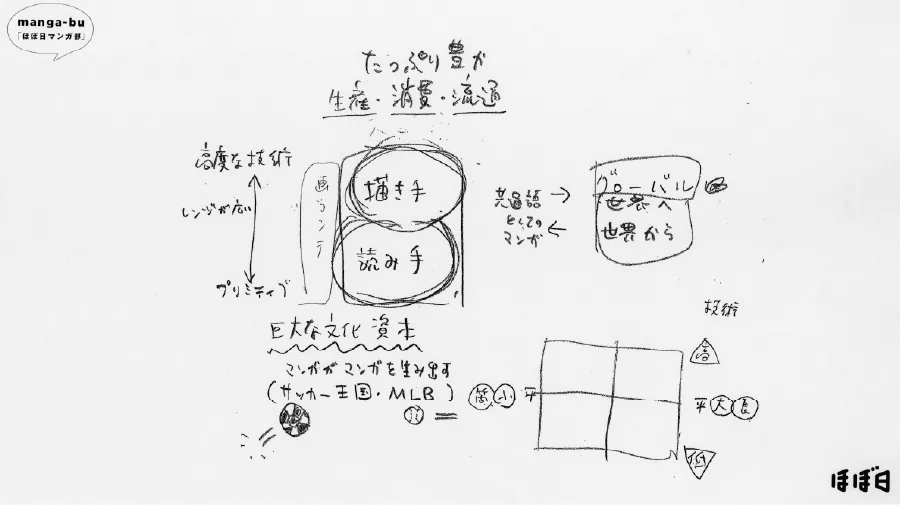 manga-bu
「ほぼ日マンガ部」
たっぷり豊か
生産・消費・流通
高度な技術
レンジが広い
プリミティブ
描き手
読み手
共通語
としての
マンガ
グローバル
世界へ
世界から
巨大な文化資本
マンガがマンガを生み出す
(サッカー王国・MLB)
技術
高
小 平
平 大 長
低
ほぼ日